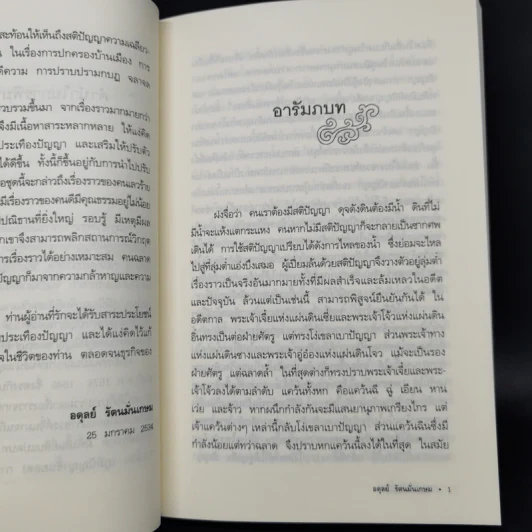 สะท้อนให้เห็นถึงสติปัญญาความเฉลียว
น ในเรื่องการปกครองบ้านเมือง การ
ดีความ การปราบปรามกบฏ จลาจล
วบรวมขึ้นมา จากเรื่องราวมากมายกว่า
จึงมีเนื้อหาสาระหลากหลาย ให้แง่คิด
ประเทืองปัญญา และเสริมให้ปรับตัว
ได้ดีขึ้น ทั้งนี้ก็ขึ้นอยู่กับการนำไปปรับ
อชุดนี้จะกล่าวถึงเรื่องราวของคนแลวร้าย
มีเรื่องราวของคนดีมีคุณธรรมอยู่ไม่น้อย
ปณิธานที่ยิ่งใหญ่ รอบรู้ มีเหตุมีผล
กเขาจึงสามารถพลิกสถานการณ์วิกฤต
การเรื่องราวได้อย่างเหมาะสม คนฉลาด
ปัญญาก็มาจากความกล้าหาญและความ
ท่านผู้อ่านที่รักจะได้รับสาระประโยชน์
ประเทืองปัญญา และได้แง่คิดไว้แก้
จในชีวิตของท่าน ตลอดจนธุรกิจของ
อดุลย์ รัตนมั่นเกษม
25 มกราคม 2534
อารัมภบท
ฝงชื่อว่า คนเราต้องมีสติปัญญา ดุจดังดินต้องมีน้ำ ดินที่ไม่
มีน้ำจะแห้งแตกระแหง คนหากไม่มีสติปัญญาก็จะกลายเป็นซากศพ
เดินได้ การใช้สติปัญญาเปรียบได้ดังการไหลของน้ำ ซึ่งย่อมจะไหล
ไปสู่ที่ลุ่มต่ำแอ่งบึงเสมอ ผู้เปี่ยมล้นด้วยสติปัญญาจึงวางตัวอยู่ลุ่มต่ำ
เรื่องราวเป็นจริงอันมากมายทั้งที่มีผลสำเร็จและล้มเหลวในอดีต
และปัจจุบัน ล้วนแต่เป็นเช่นนี้ สามารถพิสูจน์ยืนยันกันได้ ใน
อดีตกาล พระเจ้าเจี๋ยแห่งแผ่นดินเซี่ยและพระเจ้าโจ้วแห่งแผ่นดิน
อินทรงเป็นต่อฝ่ายศัตรู แต่ทรงโง่เขลาเบาปัญญา ส่วนพระเจ้าทาง
แห่งแผ่นดินซางและพระเจ้าอู่อ๋องแห่งแผ่นดินโจว แม้จะเป็นรอง
ฝ่ายศัตรู แต่ฉลาดล้ำ ในที่สุดต่างก็ทรงปราบพระเจ้าเจี๋ยและพระ
เจ้าโจ้วลงได้ตามลำดับ แคว้นทั้งหก คือแคว้นฉี ฉู่ เอียน หาน
เว่ย และจ้าว หากผนึกกำลังกันจะมีแสนยานุภาพเกรียงไกร แต่
เจ้าแคว้นต่างๆ เหล่านี้กลับโง่เขลาเบาปัญญา ส่วนแคว้นฉินซึ่งมี
กำลังน้อยแต่ทว่าฉลาด จึงปราบหกแคว้นลงได้ในที่สุด ในสมัย
อดุลย์ รัตนมั่นเกษม • 1